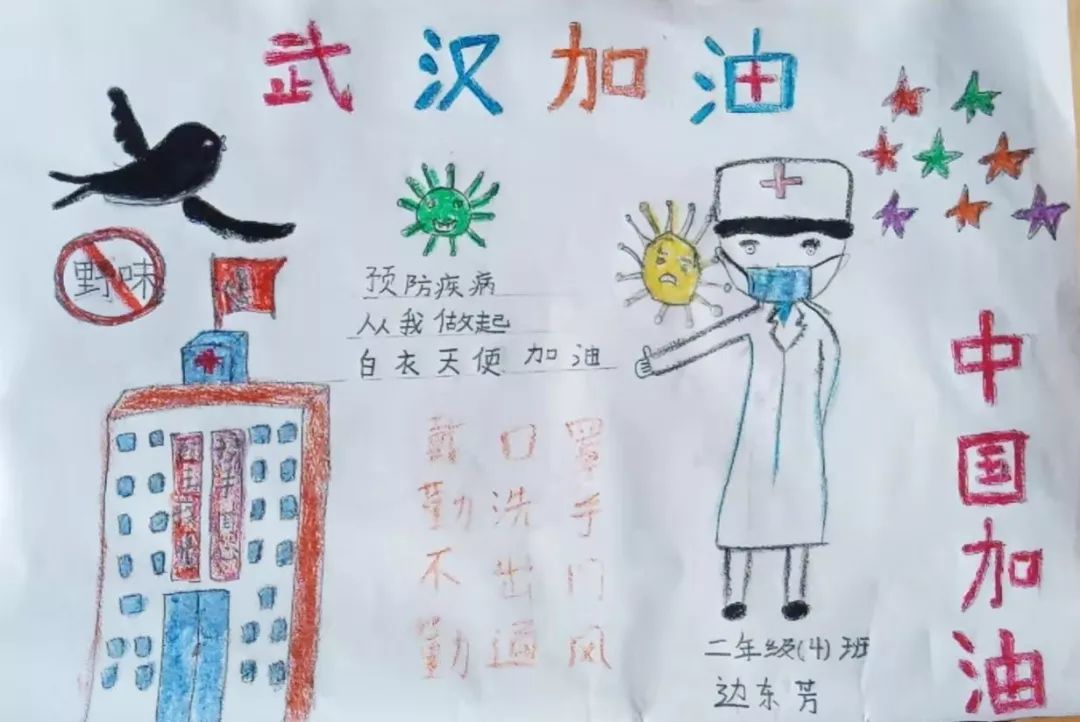 武汉加油
野味
预防疾病
从我做起
白衣天使加油
戴口罩
勤洗手
不出门
勤通风
中国加油
二年级(4)班
边东芳